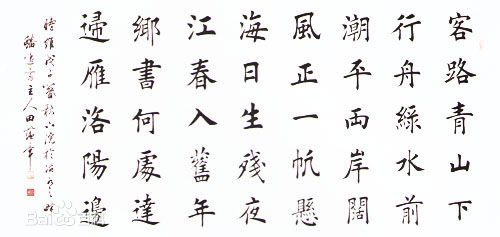 客路青山下
行舟綠水前
潮平兩岸闊
風正一帆懸
海日生殘夜
江春入舊年
鄉書何處達
歸雁洛陽邊
時維戊子
主人田蘊章
Bai百科